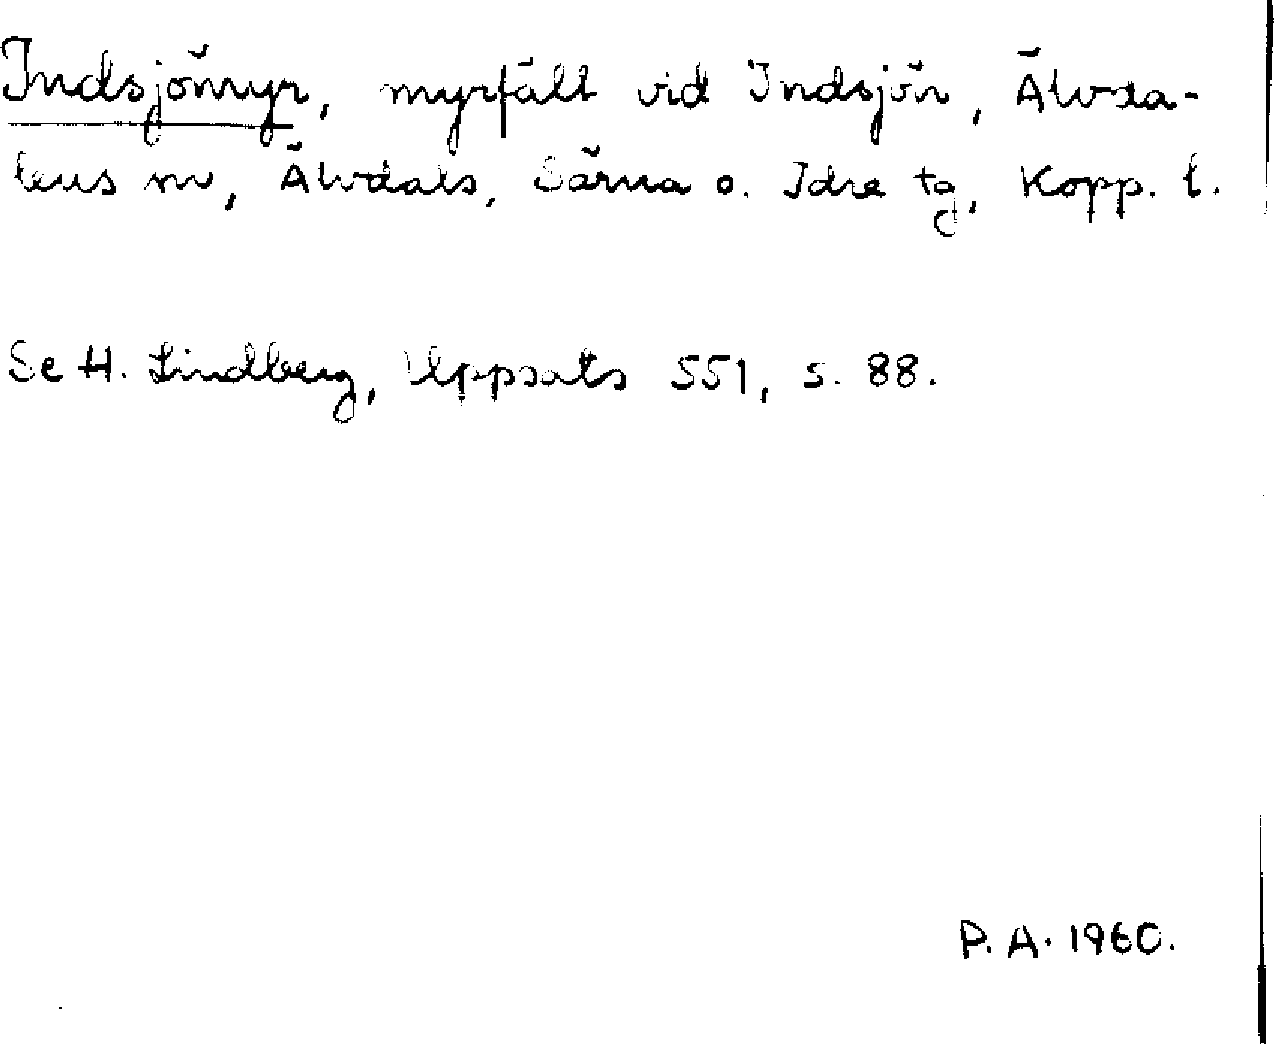 Indsjömyr, myrfält vid Indsjön, Älvda-
lens sn, Älvdals, Särna o. Idre tg, Kopp. l.
Se H. Lindberg, Uppsats 551, s. 88.
P. A. 1960.